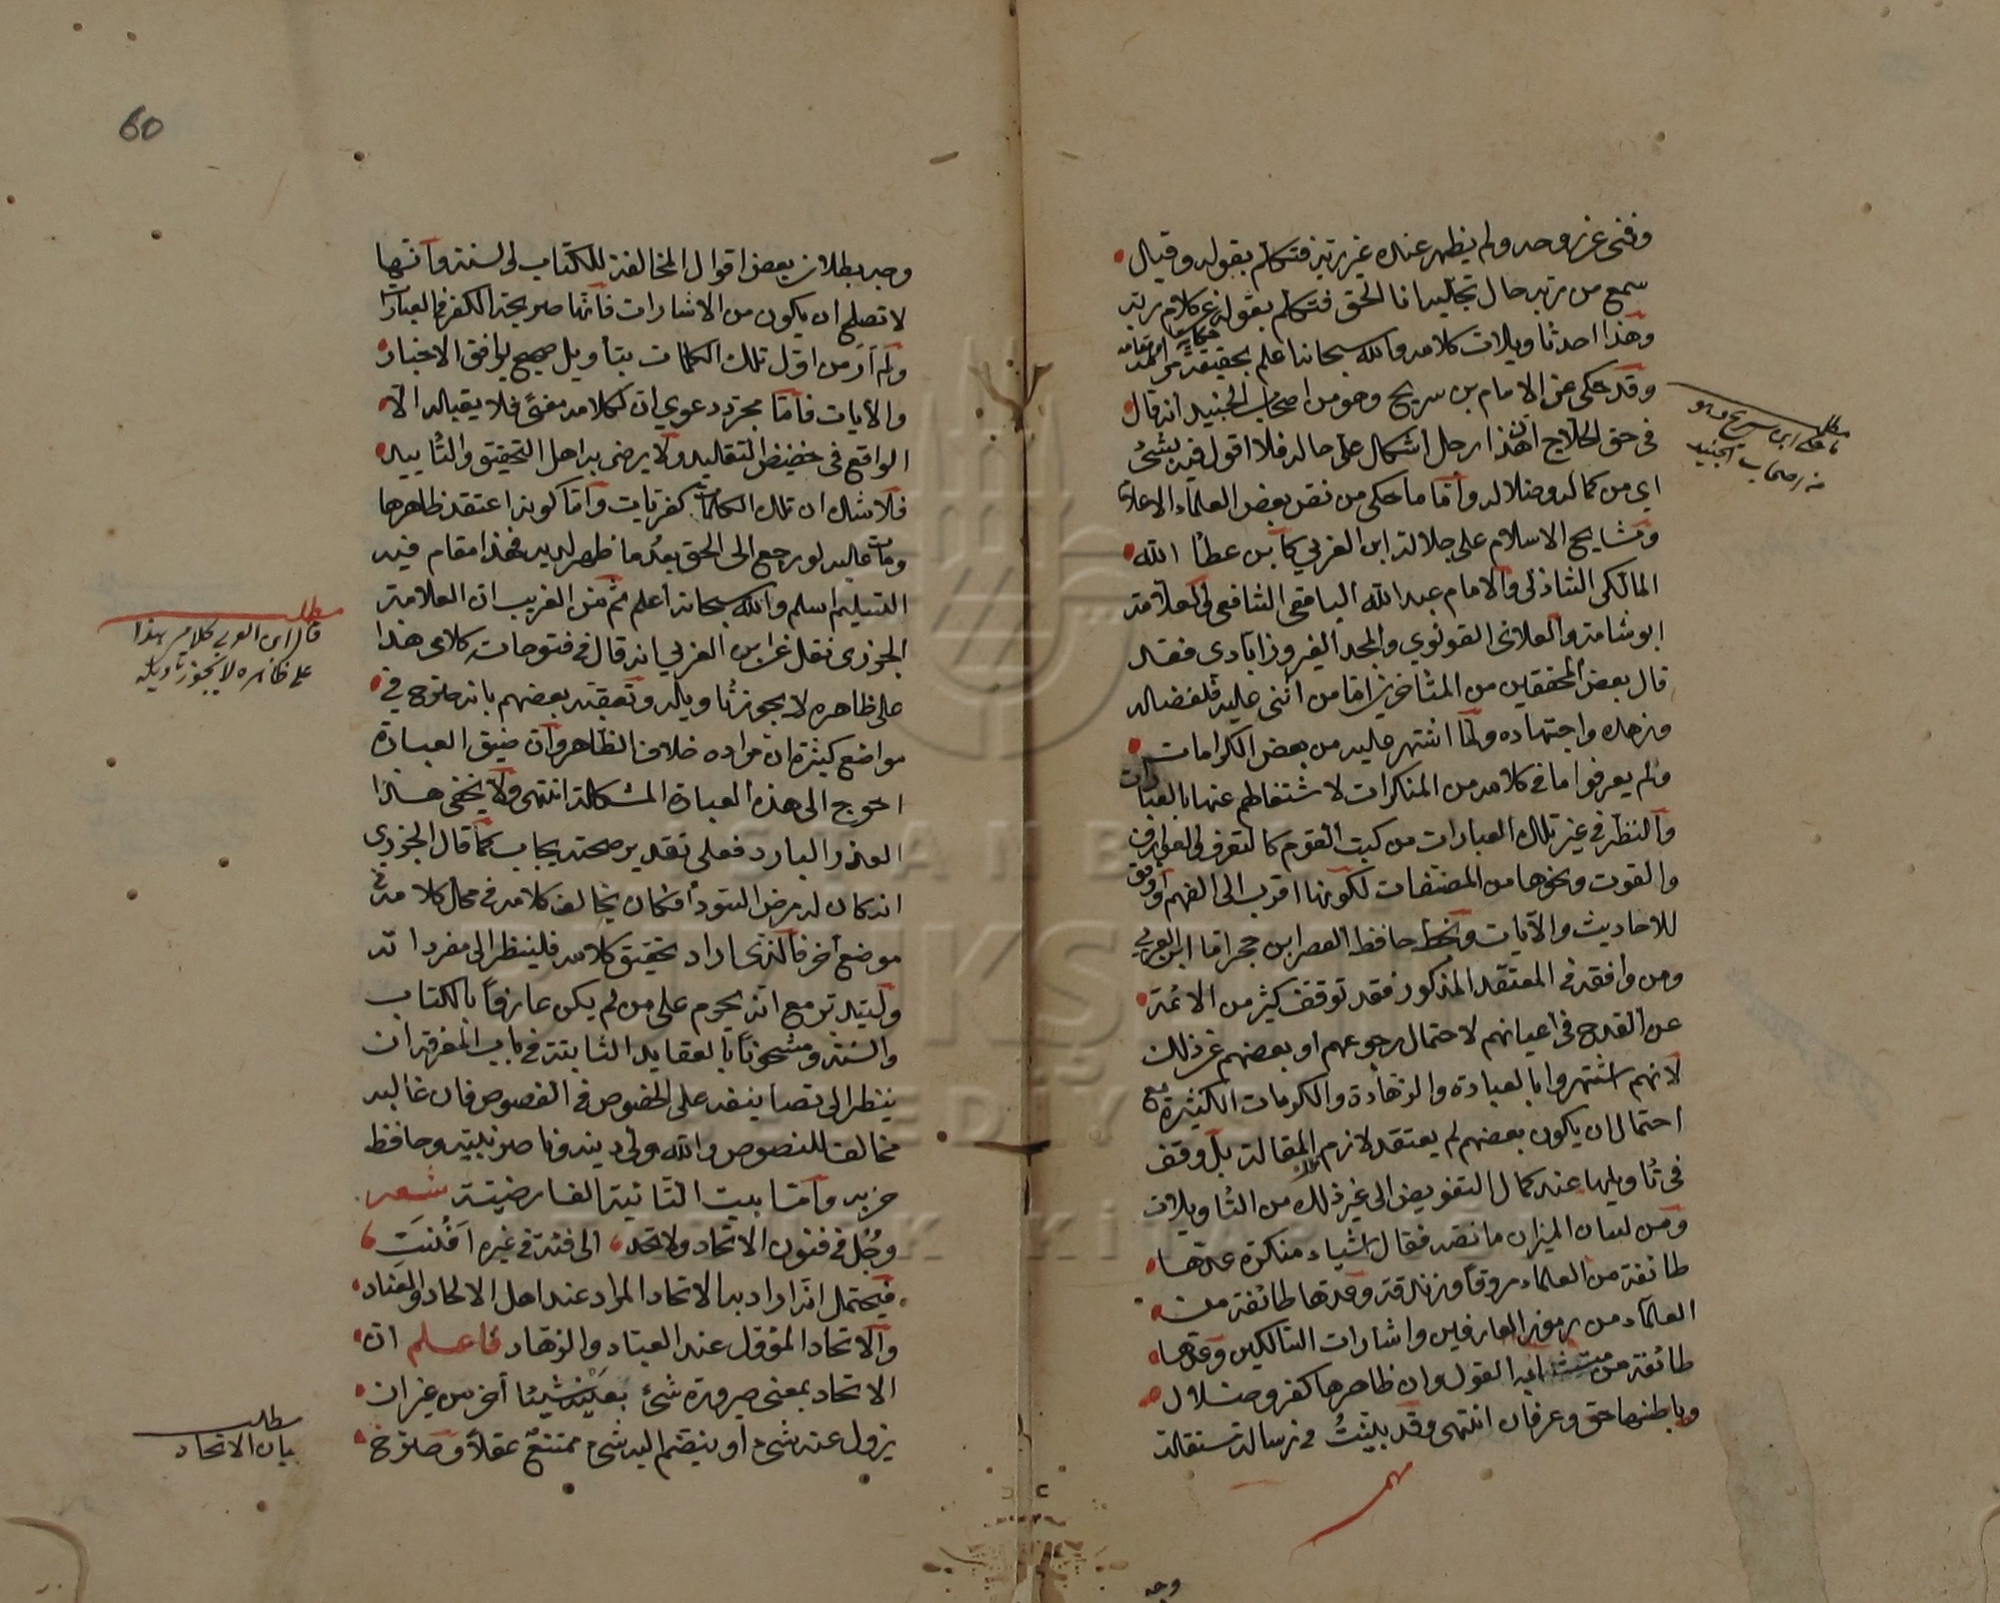 وفنى عن وجده ولم يظهر عنده غير ربه فتكلم بقوله وقيل
سمع من ربه حال تجليه انا الحق فتكلم بقوله عن كلام ربه
وهذا احد تاويلات كلامه والله سبحانه اعلم بحقيقة مرامه
وقد حكى عن الامام بن سريج وهو من اصحاب الجنيد انه قال
في حق الحلاج ان هذا رجل اشكال على حاله فلا اقول فيه بشئ
اي من كماله وضلاله وأما ما حكى من نص بعض العلماء الاعلام
ومشايخ الاسلام على جلالة ابن العربي كابن عطأ الله
المالكى الشاذلى والامام عبد الله اليافعى الشافعى والعلامة
ابو شامة والعلائى القونوي والمجد الفيروزابادى فقد
قال بعض المحققين من المتأخرين اما من أثنى عليه فلفضاله
وزهده واجتهاده ولما اشتهر عليه من بعض الكرامات
ولم يعرفوا ما في كلامه من المنكرات لاشتغالهم عنها بالعبادات
والنظر في غير تلك العبارات من كتب القوم كالتعرف والعوارف
والقوت ونحوها من المصنفات لكونها اقرب الى الفهم وأوفق
للاحاديث والآيات وبخط حافظ العصر ابن حجر اما ابن العربي
ومن وافقه في المعتقد المذكور فقد توقف كثير من الائمة
عن القدح في اعيانهم لاحتمال رجوعهم او بعضهم عن ذلك
لانهم اشتهروا بالعبادة والزهادة والكرمات الكثيرة مع
احتمال ان يكون بعضهم لم يعتقد لازم المقالة بل وقف
في تأويلها عند كمال التفويض الى غير ذلك من التأويلات
ومن لسان الميزان ما نصه فقال اشياء منكرة عدها
طائفة من العلماء مروقا وزندقة وعدها طائفة من
العلماء من رموز العارفين واشارات السالكين وعدها
طائفة من متشابه القول وان ظاهرها كفر وضلال
وباطنها حق وعرفان انتهى وقد بينت في رسالة مستقلة
وجه
ما حكى ابن سريج وهو
من اصحاب الجنيد
60
وجه بطلان بعض اقوال المخالفة للكتاب والسنة وأنها
لا تصلح ان يكون من الاشارات فأنها صريحة الكفر في العبارات
ولم أر من اول تلك الكلمات بتأويل صحيح يوافق الاخبار
والآيات فأما مجرد دعوي ان لكلامه معنى فلا يقبله الا
الواقع في حضيض التقليد ولا يرضى به اهل التحقيق والتأييد
فلا شك ان تلك الكلمات كفريات وأما كونه اعتقد ظاهرها
ومات عليه او رجع الى الحق بعد ما ظهر لديه فهذا مقام فيه
التسليم اسلم والله سبحانه أعلم ثم من الغريب ان العلامة
الجزرى نقل عن ابن العربي انه قال في فتوحاته كلامى هذا
على ظاهره لا يجوز تأويله وتعقبه بعضهم بانه صرح في
مواضع كثيرة ان مراده خلاف الظاهر وان ضيق العبارة
احوج الى هذه العبارة المشكلة انتهى ولا يخفى هذا
العذر البارد فعلى تقدير صحته يجاب كما قال الجزري
انه كان له مرض السودأ فكان يخالف كلامه في محل كلامه في
موضع آخر فالذى اراد تحقيق كلامه فلينظر الى مفرداته
وليتدبر مع انه يحرم على من لم يكن عارفا بالكتاب
والسنة ومشحونا بالعقايد الثابتة في باب المعرفة ان
ينظر الى تصانيفه على الخصوص في الفصوص فان غالبه
مخالف للنصوص والله ولى دينه وناصر نبيه وحافظ
حزبه وأما بيت التائية الفارضية شعر
وجُل في فنون الاتحاد ولا تحد الى فئة في غيره افنَتِ
فيحتمل انه اراد به الاتحاد المراد عند اهل الالحاد والعناد
والاتحاد المؤول عند العباد والزهاد فاعلم ان
الاتحاد بمعنى صيرورة شئ بعينه شيئا آخر من غير ان
يزول عنه شئ أو ينضم اليه شئ ممتنع عقلا وصرح
مطلب
قال ابن العربي كلامى هذا
على ظاهره لا يجوز تاويله
مطلب
بيان الاتحاد